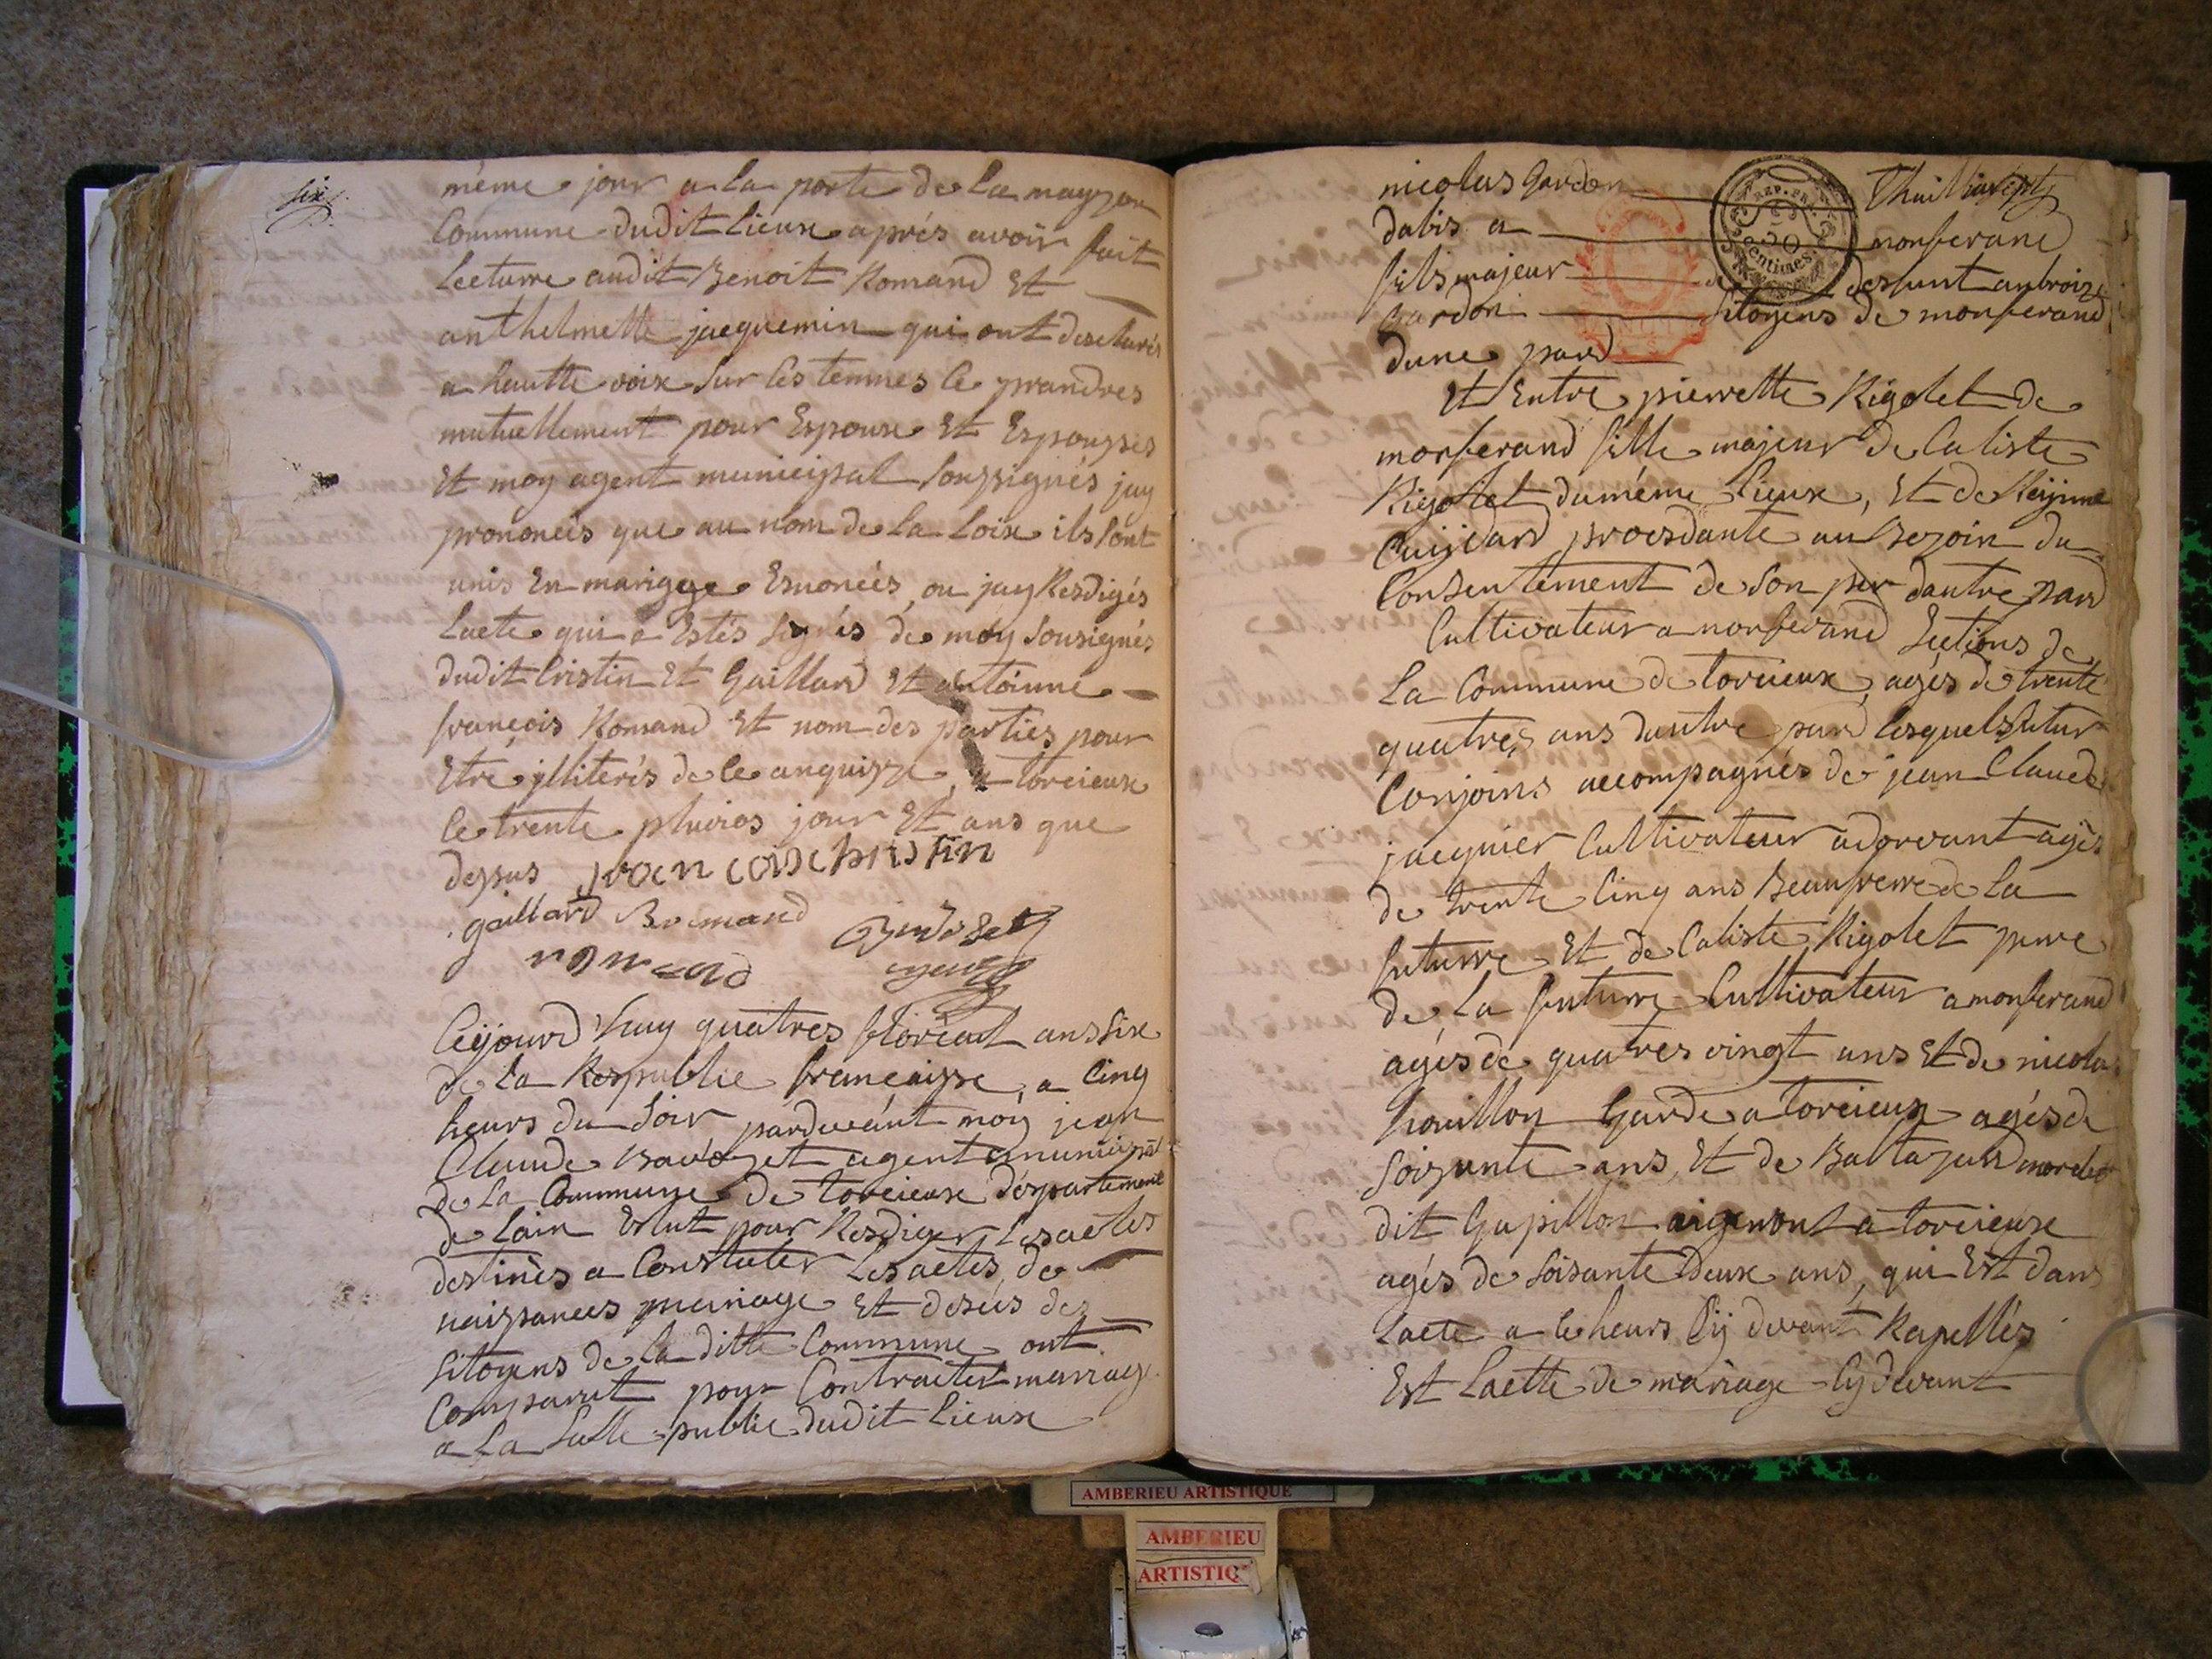 six
même jour a la porte de la mayzon
Commune dudit lieux aprés avoir fait
lecturre audit Benoit Romand Et
anthelmette jacquemin qui ont desclarés
a hautte voix sur les termes le prandres
mutuellement pour Espoux Et Espousses
Et moy agent municipal soussignés jay
prononcés que au nom de la Loix ils sont
unis En mariage Esnoncés, ou jay Resdigés
lacte qui a Estés signés de moy sousignés
dudit Cristin Et Gaillard Et antoinne
françois Romand Et nom des parties pour
Etre jlliterés de ce anquisze, a torcieux
le trente pluvios jour Et ans que
dessus
gaillard Romand
romand
Cejourd'huy quatres floreal ans six
de la Respublic françaisse, a Cinq
heurs du soir pardevant moy jean
Claude agent municipal
de la Commune de torcieux despartement
de lain Eslut pour Resdiger les actes
destinés a Constater les actes de
naissances mariage Et desés des
sitoyens de la ditte Commune ont
Comparut pour Contracter mariage
a la salle public dudit lieux
nicolas Gardon
dabis a monferand
fils majeur deffunt anbroize
Gardon sitoyens de monferand
dune pard
Et Entre pierrette Rigolet de
monferand fille majeur de Caliste
Rigollet du même lieux, Et de
procsdante au Bezoin du
Consentement de son per dautre pard
Cultivateur a monferand sections de
la Commune de torcieux, agés de trente
quatres ans dautre pard lesquels futur
Conjoins accompagnés de jean Claude
jacquier Cultivateur a dorvant agés
de trente Cinq ans Beaufrerre de la
futurre Et de Caliste Rigolet perre
de la futurre Cultivateur a monferand
agés de quatres vingt ans Et de nicolas
Garde a torcieux agés de
soizante ans, Et de Baltazard
dit Gapillon a torcieux
agés de soisante deux ans, qui Est dans
lacte a le heurs Cij devant Rapellés
Est lactte de mariage Cydevant
REP. FRA.
50
Centimes
AMBERIEU ARTISTIQUE
AMBERIEU
ARTISTIQ